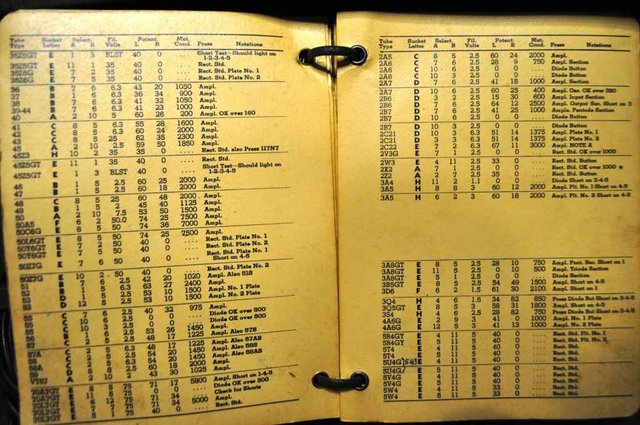 Tube Type Socket Letter Select. A B Fil. Volts Potent. L R Mut. Cond. Press Notations
35Z5GT E 8 1 BLST 40 0 .... Short Test—Should light on
1-2-3-4-5
E 11 1 35 40 0 .... Rect. Std.
35Z6G E 7 2 35 40 0 .... Rect. Std. Plate No. 1
E 7 5 35 40 0 .... Rect. Std. Plate No. 2
36 B 7 6 6.3 43 20 1050 Ampl.
37 B 1 6 6.3 36 34 900 Ampl.
38 B 7 6 6.3 41 32 1050 Ampl.
39-44 B 7 6 6.3 41 23 1000 Ampl.
40 A 2 10 5 60 26 200 Ampl. OK over 160
41 C 8 5 6.3 55 28 1600 Ampl.
42 C 8 5 6.3 60 24 2000 Ampl.
43 C 8 5 25 62 35 2300 Ampl.
45 A 2 10 2.5 59 50 1850 Ampl.
45Z3 H 10 2 35 35 0 .... Rect. Std. also Press 117N7
45Z5GT E 11 1 35 40 0 .... Rect. Std.
45Z5GT E 1 3 BLST 40 0 .... Short Test—Should light on
1-2-3-4-5
46 B 1 5 2.5 60 25 2000 Ampl.
47 B 1 5 2.5 60 18 2000 Ampl.
48 C 8 5 25 60 48 2000 Ampl.
49 B 1 5 2 45 40 1125 Ampl.
50 A 2 10 7.5 53 50 1500 Ampl.
50A5 F 6 2 50.0 74 25 7500 Ampl.
50C6G E 8 5 50 74 36 7000 Ampl.
50L6GT E 8 5 50 74 25 7500 Ampl.
50Y6GT E 7 2 50 40 0 .... Rect. Std. Plate No. 1
50Y6GT E 7 5 50 40 0 .... Rect. Std. Plate No. 2
50Z7G E 7 6 50 40 0 .... Rect. Std. Plate No. 1
Short on 4-5
50Z7G E 10 2 50 40 0 .... Rect. Std. Plate No. 2
51 B 7 6 2.5 42 20 1020 Ampl. Also 51S
52 B 1 5 6.3 63 27 2400 Ampl.
53 D 1 5 2.5 53 10 1500 Ampl. No. 1 Plate
53 D 12 5 2.5 53 10 1500 Ampl. No. 2 Plate
55 C 7 6 2.5 40 32 975 Ampl.
55 C 10 2.5 40 0 .... Diode OK over 500
55 C 10 3 2.5 40 0 .... Diode OK over 500
56 B 1 5 2.5 53 28 1450 Ampl.
57 C 7 5 2.5 48 17 1225 Ampl. Also 57S
57A C 7 5 6.3 48 17 1225 Ampl. Also 57AS
58 C 7 6 2.5 54 20 1450 Ampl. Also 58S
58A C 7 6 6.3 54 20 1450 Ampl. Also 58AS
59 D 8 6 2.5 60 18 2000 Ampl.
VT67 A 2 10 2 43 30 1025 Ampl.
70A7GT E 8 5 75 71 17 5800 Ampl. Short on 1-4-5
Diode OK over 300
Check for Shorts
70L7GT E 6 12 75 71 34 5000 Ampl.
70L7GT E 7 7 75 40 0 .... Rect. Std.
Tube Type Socket Letter Selectr. A B Fil. Volts Potent. L R Mut. Cond. Press Notations
2A5 C 8 5 2.5 60 24 2000 Ampl.
2A6 C 7 6 2.5 28 9 750 Ampl. Section
2A6 C 10 2 2.5 40 0 .... Diode Button
2A6 C 10 3 2.5 40 0 .... Diode Button
2A7 D 7 6 2.5 41 18 1000 Ampl. Section
2A7 D 10 6 2.5 60 25 400 Ampl. Osc. OK over 320
2B6 D 3 2 2.5 15 30 600 Ampl. Input Section
2B6 D 7 6 2.5 64 12 2500 Ampl. Output Sec. Short on 3
2B7 D 7 6 2.5 41 25 1000 Ampl. Pentode Section
2B7 D 10 6 2.5 40 0 .... Diode Button
2B7 D 10 3 2.5 40 0 .... Diode Button
2C21 D 10 3 6.3 51 14 1375 Ampl. Plate No. 1
2C21 D 3 3 6.3 51 14 1375 Ampl. Plate No. 2
2C22 E 7 2 6.3 67 11 3000 Ampl. NOTE A
2V3G E 7 1 2.5 40 0 .... Rect. Std. OK over 1000
2W3 E 4 11 2.5 33 0 .... Rect. Button
2X2 A 7 1 2.5 40 0 .... Rect. Std. OK over 1000
2Z2 A 7 1 2.5 35 0 .... Rect. Button
3A4 H 11 2 1.1 0 0 .... Diode Short on 3-4-5
3A5 H 8 8 3 60 12 2000 Ampl. Plt. No. 1 Short on 4-5
3A5 H 6 2 3 60 18 2000 Ampl. Plt. No. 2 Short on 4-5
3A8GT E 8 5 2.5 28 10 750 Ampl. Pent. Sec. Short on 1
3A8GT E 11 5 2.5 0 10 500 Ampl. Triode Section
3A8GT E 5 1 2.5 0 0 .... Diode Button
3B5GT E 8 5 2.5 54 49 1500 Ampl. Short on 4-5
3D6 F 6 2 1.5 61 30 2100 Ampl. Short on 1
3Q4 H 4 6 1.5 34 82 850 Press Diode But Short on 3-4-5
3Q5GT E 8 5 3 58 31 1800 Ampl. Short on 4-5
3S4 H 4 6 2.5 28 82 750 Press Diode But Short on 3-4-5
4A6G E 2 9 3 40 13 1000 Ampl. No. 1 Plate
4A6G E 12 5 3 41 13 1000 Ampl. No. 2 Plate
5R4GY E 4 11 5 40 0 .... Rect. Std. Plt. No. 1
5R4GY E 4 5 5 40 0 .... Rect. Std. Plt. No. 2
5T4 E 4 11 5 40 0 .... Rect. Std.
5T4 E 4 5 5 40 0 .... Rect. Std.
5U4G E 4 11 5 40 0 .... Rect. Std.
5U4G E 4 5 5 40 0 .... Rect. Std.
5V4G E 4 11 5 40 0 .... Rect. Std.
5V4G E 4 5 5 40 0 .... Rect. Std.
5W4 E 4 11 5 33 0 .... Rect. Std.
5W4 E 4 5 5 33 0 .... Rect. Std.